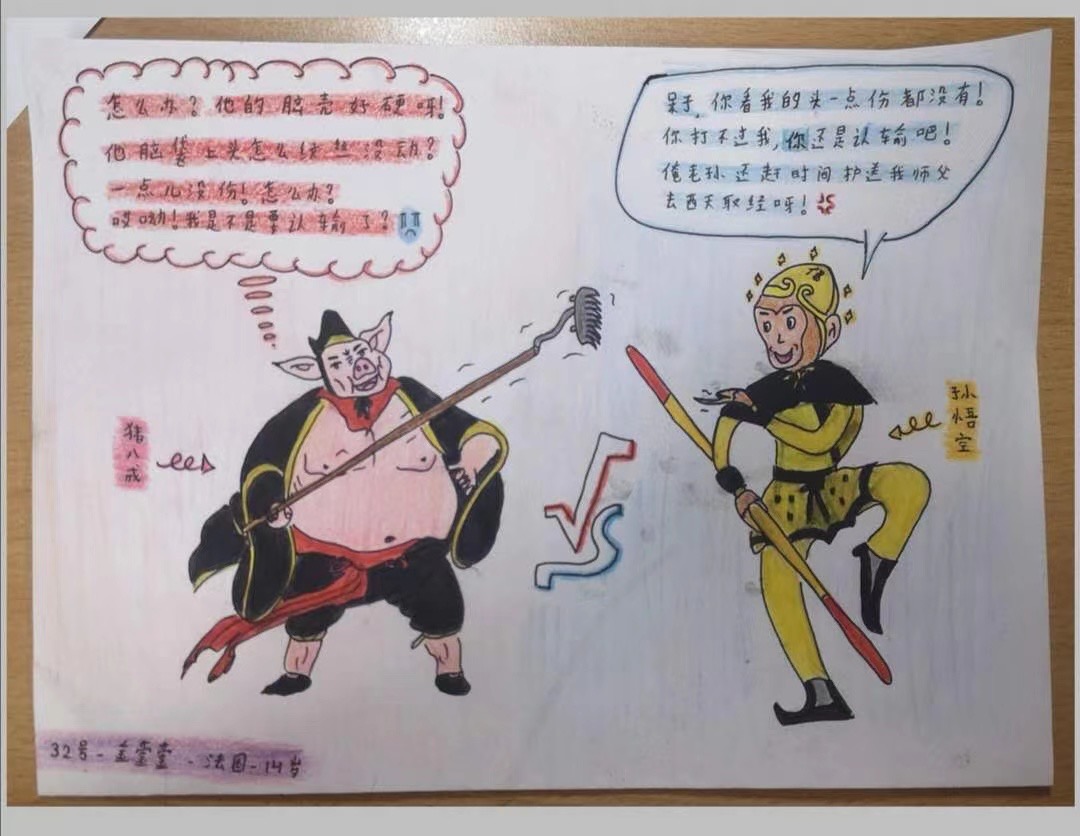 怎么办？他的脑壳好硬呀！
他脑袋上头怎么纹丝没动？
一点儿没伤！怎么办？
哎呦！我是不是要认输了？
呆子，你看我的头一点伤都没有！
你打不过我，你还是认输吧！
俺老孙还赶时间护送我师父
去西天取经呀！
猪八戒
VS
孙悟空
32号-金壹壹-法国-14岁